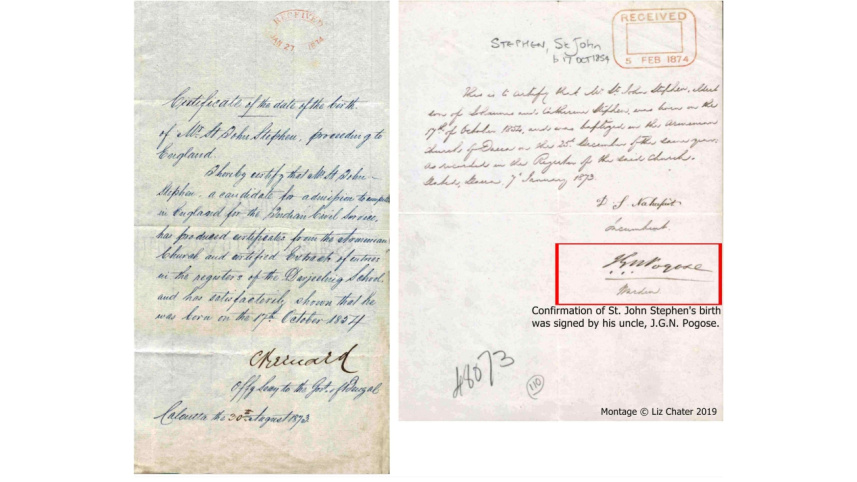 RECEIVED
JAN 27 1874
Certificate of the date of the birth
of Mr. St John Stephen, proceeding to
England.
I hereby certify that Mr St John
Stephen, a candidate for admission to compete
in England for the Indian Civil Service,
has produced certificates from the Armenian
Church and certified Extracts of entries
in the registers of the Darjeeling School
and has satisfactorily shown that he
was born on the 17th October 1854
CBernard
Offg Secy to the Govt. of Bengal
Calcutta the 30th August 1873
STEPHEN, St John
b 17 OCT 1854
RECEIVED
5 FEB 1874
This is to certify that Mr St John Stephen,
son of and Catherine Stephen, was born on the
17th of October 1854, and was baptized in the Armenian
Church of Dacca on the 25th December of the same year,
as recorded in the Register of the said Church.
Dacca, 7 January 1873.
Incumbent
J.G.N. Pogose
Warden
Confirmation of St. John Stephen's birth
was signed by his uncle, J.G.N. Pogose.
48073
110
Montage © Liz Chater 2019